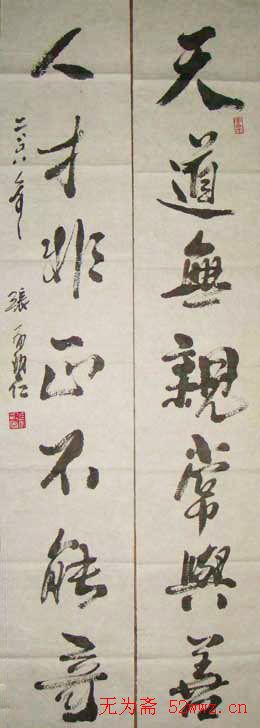 天道無親常與善
人才非正不能奇
二〇〇八年
張
仁
无为斋 52wwz.cn